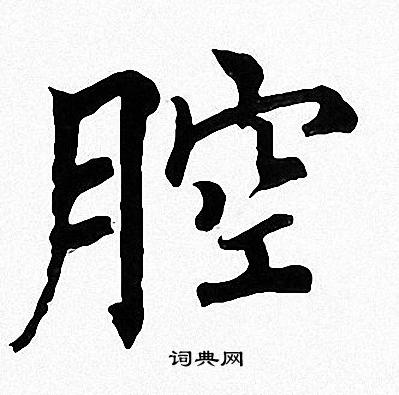 腔
词典网